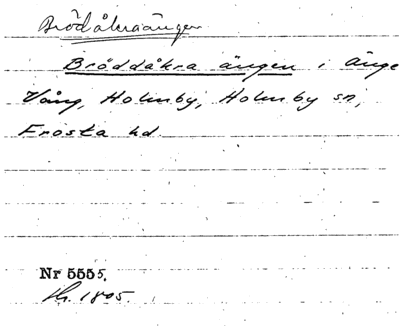 Brödåkraängen
Bröddåkra ängen i änge
Vång, Holmby, Holmby sn,
Frosta hd
Nr 5555.
1805.